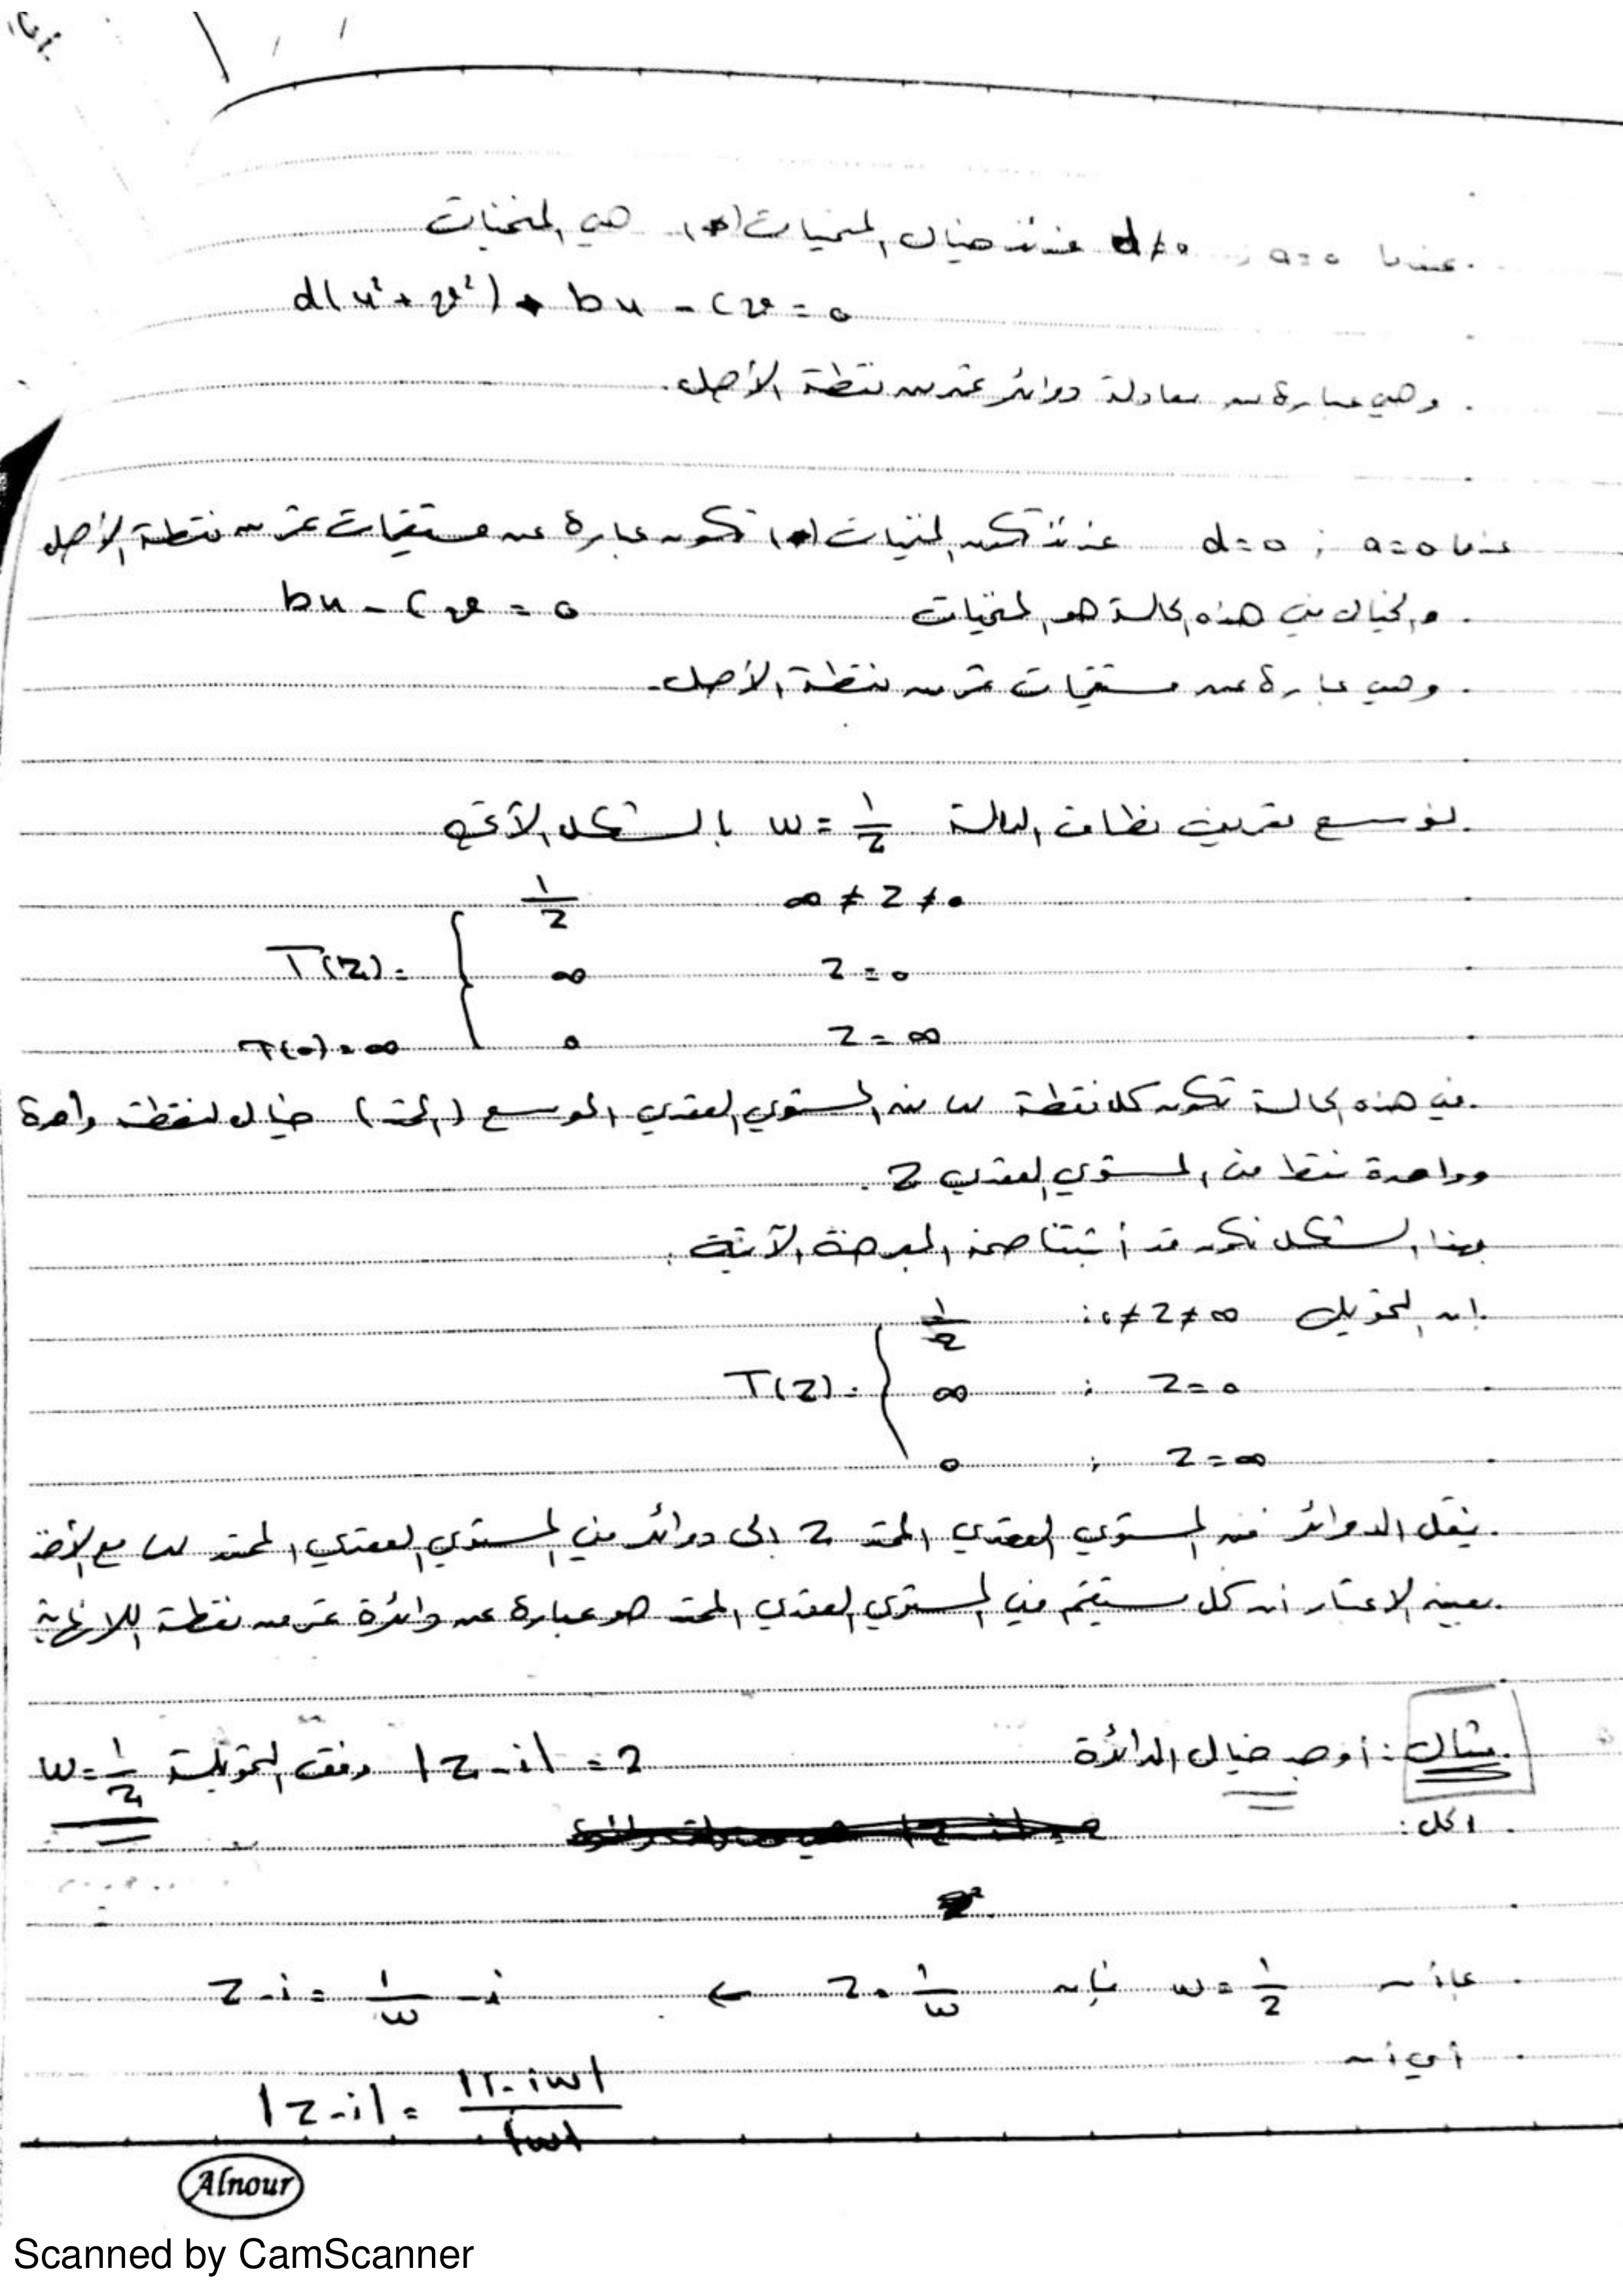 عندما a=0 ; d≠0 عندئذ خيال المنحنيات (*) هي المنحنيات
d(u²+v²) + bu - cv = 0
وهي عبارة عن معادلة دوائر تمر من نقطة الأصل.
عندما a=0 ; d=0 عندئذ تكون المنحنيات (*) تكون عبارة عن مستقيمات تمر من نقطة الأصل
والخيال في هذه الحالة هو المنحنيات bu - cv = 0
وهي عبارة عن مستقيمات تمر من نقطة الأصل.
لنوسع تعريف نطاق الدالة w = 1/z بالشكل الآتي
1/z ∞ ≠ z ≠ 0
T(z) = { ∞ z = 0
T(0) = ∞ 0 z = ∞
في هذه الحالة تكون كل نقطة w من المستوي العقدي الموسع (الممتد) خيال لنقطة واحدة
وواحدة فقط من المستوي العقدي z.
بهذا الشكل نكون قد أثبتنا صحة المبرهنة الآتية.
إن التحويل 1/z ; 0 ≠ z ≠ ∞
T(z) = { ∞ ; z = 0
0 ; z = ∞
ينقل الدوائر من المستوي العقدي الممتد z إلى دوائر في المستوي العقدي الممتد w مع الأخذ
بعين الاعتبار أن كل مستقيم في المستوي العقدي الممتد هو عبارة عن دائرة تمر من نقطة اللانهاية
مثال: أوجد خيال الدائرة |z-i| = 2 وفق التحويلة w = 1/z
الحل:
بما أن w = 1/z فإن z = 1/w ← z-i = 1/w - i
أي أن
|z-i| = |1-iw| / |w|
Alnour
Scanned by CamScanner